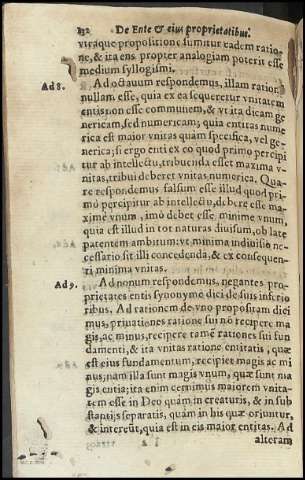 132 De Ente & eius proprietatibus.
vtraque propositione sumitur eadem ratio-
ne, & ita ens propter analogiam poterit esse
medium syllogismi.
Ad 8. Ad octauum respondemus, illam rationẽ
nullam esse, quia ex ea sequeretur vnitatem
entis non esse communem, & vt ita dicam ge
nericam, sed numericam; quia entitas nume
rica est maior vnitas quàm specifica, vel ge-
nerica; si ergo enti ex eo quod primo percipi
tur ab intellectu, tribuenda esset maxima v-
nitas, tribui deberet vnitas numerica. Qua-
re respondemus falsum esse illud quod pri-
mò percipitur ab intellectu, debere esse ma-
ximè vnum, imò debet esse minimè vnum,
quia est illud in tot naturas diuisum, ob late
patentem ambitum: vt minima indiuisio ne-
cessario sit illi concedenda, & ex consequen-
ti minima vnitas.
Ad 9. Ad nonum respondemus, negantes pro-
prietates entis synonymè dici de suis inferio
ribus. Ad rationem de vno propositam dici
mus, priuationes ratione sui nõ recipere ma
gis, ac minus, recipere tamẽ rationes sui fun
damenti, & ita vnitas ratione entitatis, quæ
est eius fundamentum, recipiet magis ac mi
nus; nam illa sunt magis vnum, quæ sunt ma
gis entia; ita enim cernimus maiorem vnita-
tem esse in Deo quàm in creaturis, & in sub
stantijs separatis, quàm in his quæ oriuntur,
& intereũt, quia est in eis maior entitas. Ad
alteram